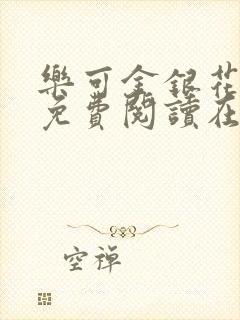 樂可金銀花
免費閱讀在
空禅